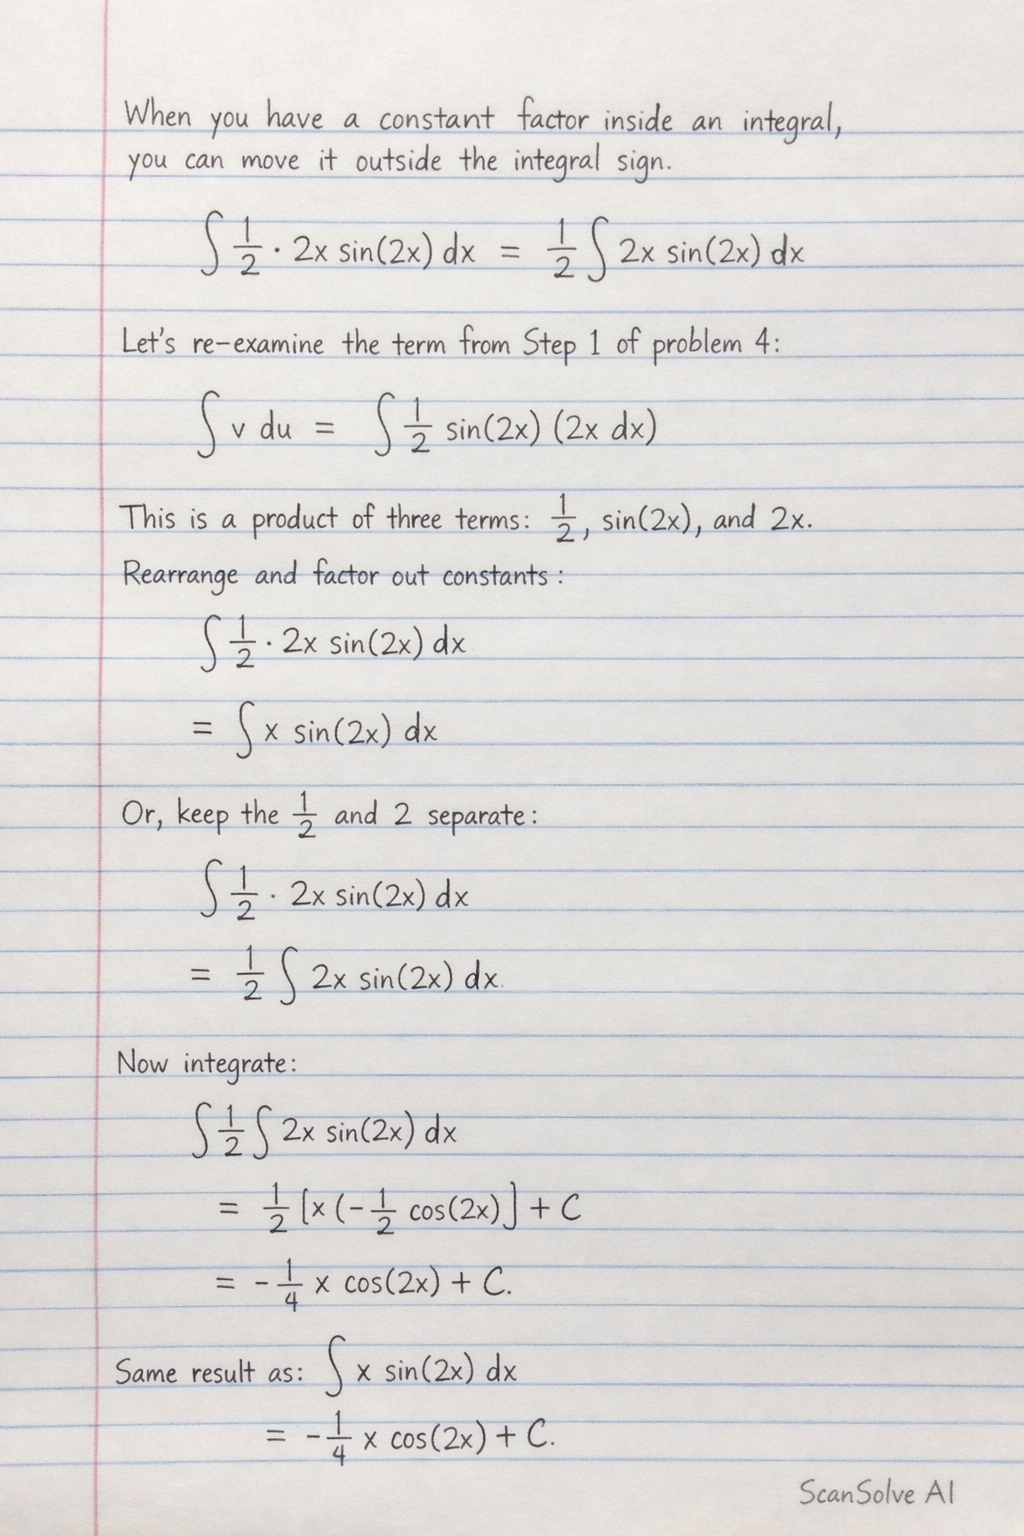 When you have a constant factor inside an integral,
you can move it outside the integral sign.
∫ 1/2 · 2x sin(2x) dx = 1/2 ∫ 2x sin(2x) dx
Let's re-examine the term from Step 1 of problem 4:
∫ v du = ∫ 1/2 sin(2x) (2x dx)
This is a product of three terms: 1/2, sin(2x), and 2x.
Rearrange and factor out constants:
∫ 1/2 · 2x sin(2x) dx
= ∫ x sin(2x) dx
Or, keep the 1/2 and 2 separate:
∫ 1/2 · 2x sin(2x) dx
= 1/2 ∫ 2x sin(2x) dx.
Now integrate:
∫ 1/2 ∫ 2x sin(2x) dx
= 1/2 [x (-1/2 cos(2x)] + C
= -1/4 x cos(2x) + C.
Same result as: ∫ x sin(2x) dx
= -1/4 x cos(2x) + C.
ScanSolve AI